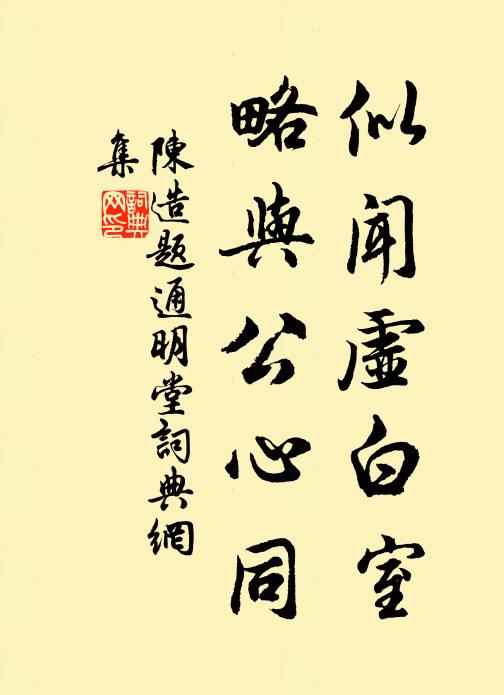 似闻虚白室
略與公心同
陳造题通明堂詞典網
集
詞典
网印